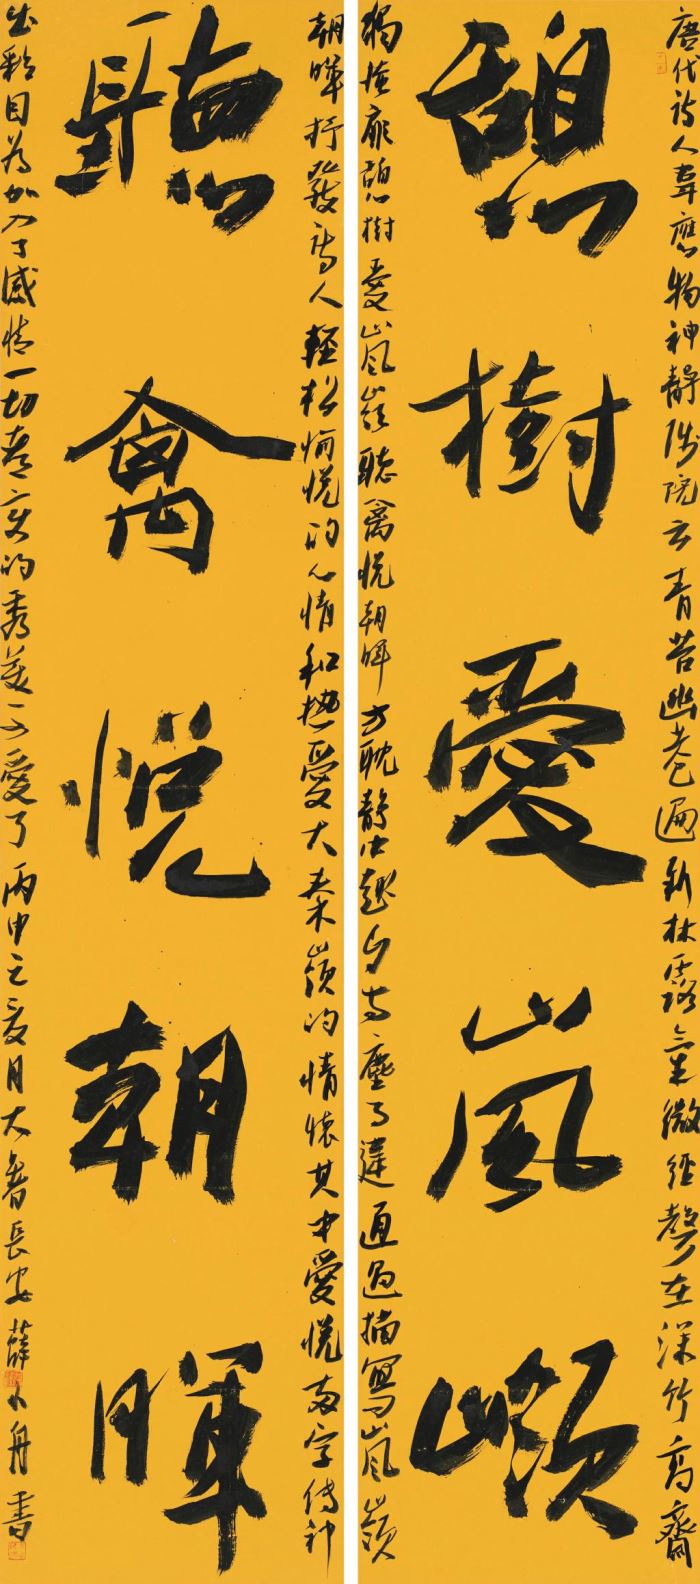 唐代詩人韋應物神靜師院云青苔幽巷遍新林露氣微經聲在深竹高齋
憩樹愛嵐嶺
獨掩扉憩樹愛嵐嶺聽禽悅朝暉方耽靜中趣自与塵事違通過描寫嵐嶺
朝暉抒發詩人輕松愉悅的心情和热愛大秦嶺的情懷其中愛悅兩字傳神
聽禽悅朝暉
出彩因为加入了感情一切都变的秀美可愛了丙申之夏月大暑長安薛小舟書